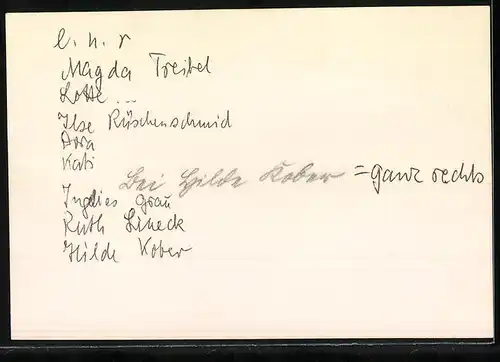 l. n. r
Magda Treibel
Lotte ...
Ilse Rüschenschmid
Dora
Kati
bei Hilde Kober = ganz rechts
Ingelies Grau
Ruth Lineck
Hilde Kober